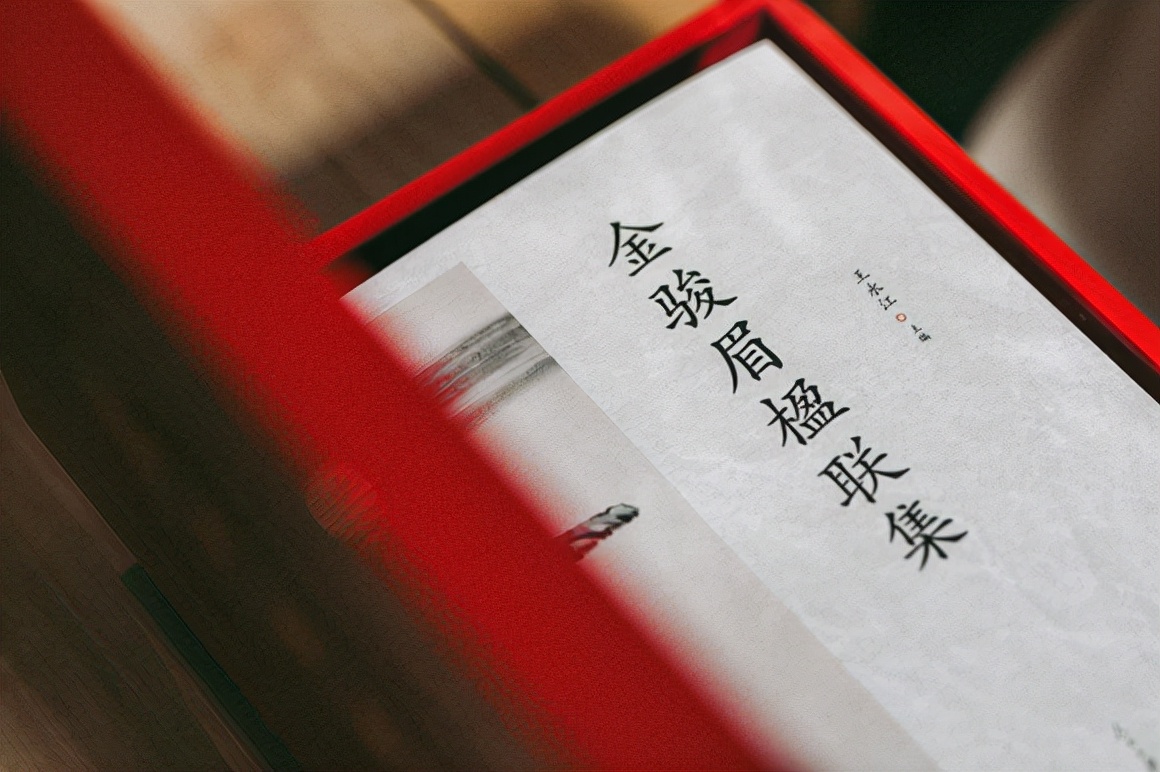 金骏眉楹联集
王水江 主编